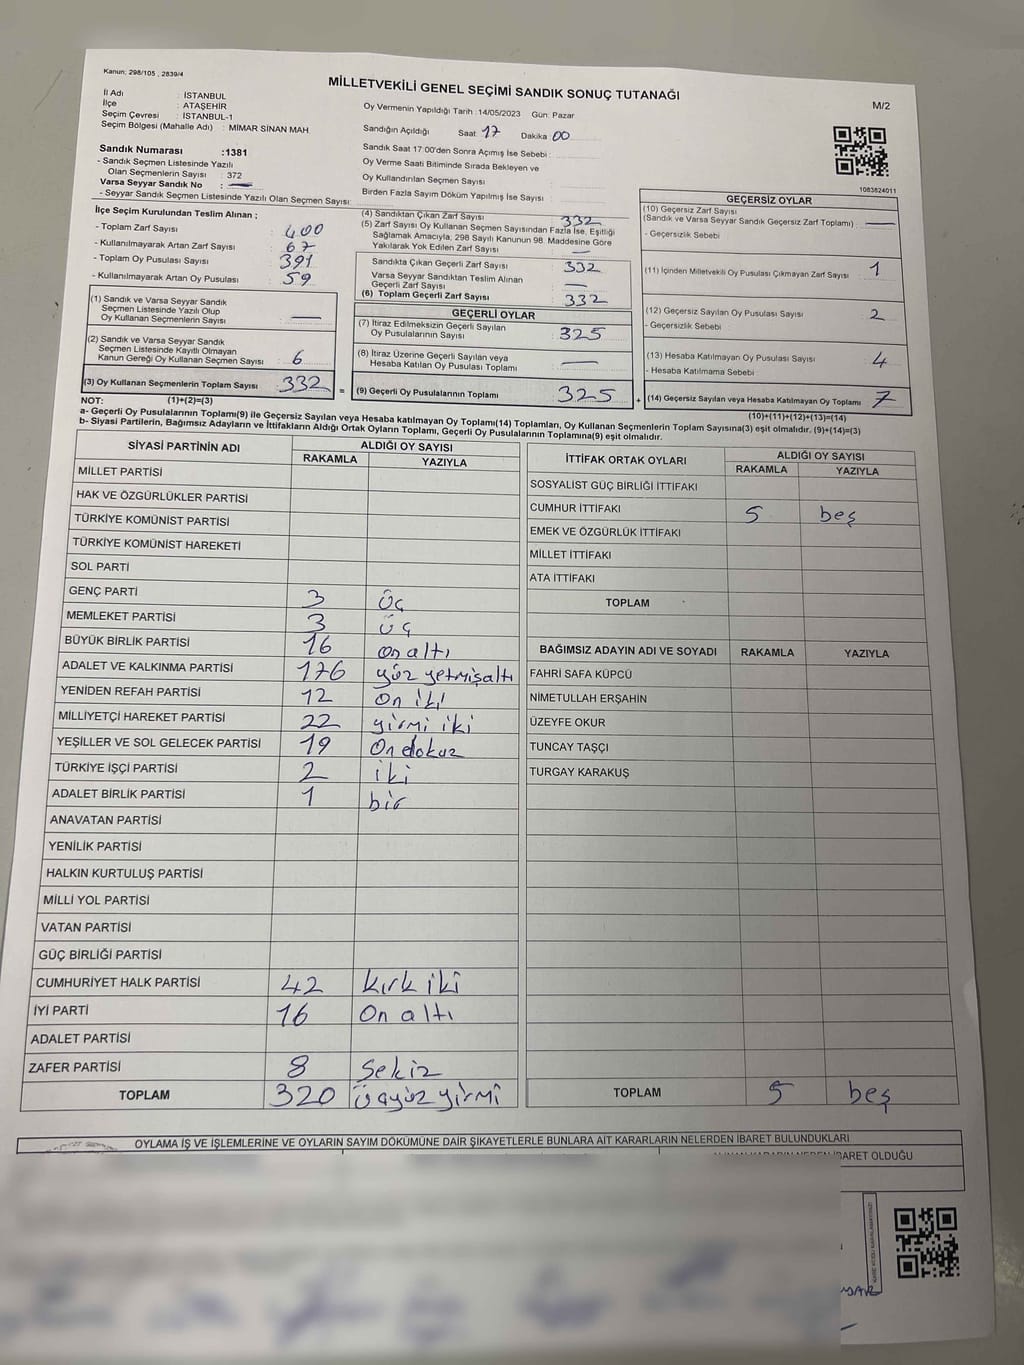 Kanun: 298/105 , 2839/4
MİLLETVEKİLİ GENEL SEÇİMİ SANDIK SONUÇ TUTANAĞI
M/2
İl Adı : İSTANBUL
İlçe : ATAŞEHİR
Seçim Çevresi : İSTANBUL-1
Seçim Bölgesi (Mahalle Adı) : MİMAR SİNAN MAH.
Sandık Numarası :1381
- Sandık Seçmen Listesinde Yazılı
Olan Seçmenlerin Sayısı : 372
Varsa Seyyar Sandık No : —
- Seyyar Sandık Seçmen Listesinde Yazılı Olan Seçmen Sayısı:
Oy Vermenin Yapıldığı Tarih :14/05/2023 Gün: Pazar
Sandığın Açıldığı Saat: 17 Dakika 00
Sandık Saat 17:00'den Sonra Açımış İse Sebebi :
Oy Verme Saati Bitiminde Sırada Bekleyen ve
Oy Kullandırılan Seçmen Sayısı :
Birden Fazla Sayım Döküm Yapılmış İse Sayısı :
1083624011
İlçe Seçim Kurulundan Teslim Alınan ;
- Toplam Zarf Sayısı : 400
- Kullanılmayarak Artan Zarf Sayısı : 67
- Toplam Oy Pusulası Sayısı : 391
- Kullanılmayarak Artan Oy Pusulası : 59
(1) Sandık ve Varsa Seyyar Sandık
Seçmen Listesinde Yazılı Olup
Oy Kullanan Seçmenlerin Sayısı : —
(2) Sandık ve Varsa Seyyar Sandık
Seçmen Listesinde Kayıtlı Olmayan
Kanun Gereği Oy Kullanan Seçmen Sayısı : 6
(3) Oy Kullanan Seçmenlerin Toplam Sayısı : 332 =
(4) Sandıktan Çıkan Zarf Sayısı : 332
(5) Zarf Sayısı Oy Kullanan Seçmen Sayısından Fazla İse, Eşitliği
Sağlamak Amacıyla, 298 Sayılı Kanunun 98. Maddesine Göre
Yakılarak Yok Edilen Zarf Sayısı : —
Sandıkta Çıkan Geçerli Zarf Sayısı : 332
Varsa Seyyar Sandıktan Teslim Alınan
Geçerli Zarf Sayısı : —
(6) Toplam Geçerli Zarf Sayısı : 332
GEÇERLİ OYLAR
(7) İtiraz Edilmeksizin Geçerli Sayılan
Oy Pusulalarının Sayısı : 325
(8) İtiraz Üzerine Geçerli Sayılan veya
Hesaba Katılan Oy Pusulası Toplamı : —
(9) Geçerli Oy Pusulalarının Toplamı : 325 +
GEÇERSİZ OYLAR
(10) Geçersiz Zarf Sayısı
(Sandık ve Varsa Seyyar Sandık Geçersiz Zarf Toplamı) : —
- Geçersizlik Sebebi :
(11) İçinden Milletvekili Oy Pusulası Çıkmayan Zarf Sayısı : 1
(12) Geçersiz Sayılan Oy Pusulası Sayısı : 2
- Geçersizlik Sebebi :
(13) Hesaba Katılmayan Oy Pusulası Sayısı : 4
- Hesaba Katılmama Sebebi :
(14) Geçersiz Sayılan veya Hesaba Katılmayan Oy Toplamı : 7
NOT: (1)+(2)=(3)
(10)+(11)+(12)+(13)=(14)
a- Geçerli Oy Pusulalarının Toplamı(9) ile Geçersiz Sayılan veya Hesaba katılmayan Oy Toplamı(14) Toplamları, Oy Kullanan Seçmenlerin Toplam Sayısına(3) eşit olmalıdır. (9)+(14)=(3)
b- Siyasi Partilerin, Bağımsız Adayların ve İttifakların Aldığı Ortak Oyların Toplamı, Geçerli Oy Pusulalarının Toplamına(9) eşit olmalıdır.
SİYASİ PARTİNİN ADI ALDIĞI OY SAYISI
RAKAMLA YAZIYLA
MİLLET PARTİSİ
HAK VE ÖZGÜRLÜKLER PARTİSİ
TÜRKİYE KOMÜNİST PARTİSİ
TÜRKİYE KOMÜNİST HAREKETİ
SOL PARTİ
GENÇ PARTİ 3 Üç
MEMLEKET PARTİSİ 3 üç
BÜYÜK BİRLİK PARTİSİ 16 on altı
ADALET VE KALKINMA PARTİSİ 176 yüz yetmişaltı
YENİDEN REFAH PARTİSİ 12 On iki
MİLLİYETÇİ HAREKET PARTİSİ 22 yirmi iki
YEŞİLLER VE SOL GELECEK PARTİSİ 19 On dokuz
TÜRKİYE İŞÇİ PARTİSİ 2 iki
ADALET BİRLİK PARTİSİ 1 bir
ANAVATAN PARTİSİ
YENİLİK PARTİSİ
HALKIN KURTULUŞ PARTİSİ
MİLLİ YOL PARTİSİ
VATAN PARTİSİ
GÜÇ BİRLİĞİ PARTİSİ
CUMHURİYET HALK PARTİSİ 42 kırk iki
İYİ PARTİ 16 On altı
ADALET PARTİSİ
ZAFER PARTİSİ 8 Sekiz
TOPLAM 320 Üçyüz yirmi
İTTİFAK ORTAK OYLARI ALDIĞI OY SAYISI
RAKAMLA YAZIYLA
SOSYALİST GÜÇ BİRLİĞİ İTTİFAKI
CUMHUR İTTİFAKI 5 beş
EMEK VE ÖZGÜRLÜK İTTİFAKI
MİLLET İTTİFAKI
ATA İTTİFAKI
TOPLAM
BAĞIMSIZ ADAYIN ADI VE SOYADI RAKAMLA YAZIYLA
FAHRİ SAFA KÜPCÜ
NİMETULLAH ERŞAHİN
ÜZEYFE OKUR
TUNCAY TAŞÇI
TURGAY KARAKUŞ
TOPLAM 5 beş
OYLAMA İŞ VE İŞLEMLERİNE VE OYLARIN SAYIM DÖKÜMÜNE DAİR ŞİKAYETLERLE BUNLARA AİT KARARLARIN NELERDEN İBARET BULUNDUKLARI
İBARET OLDUĞU